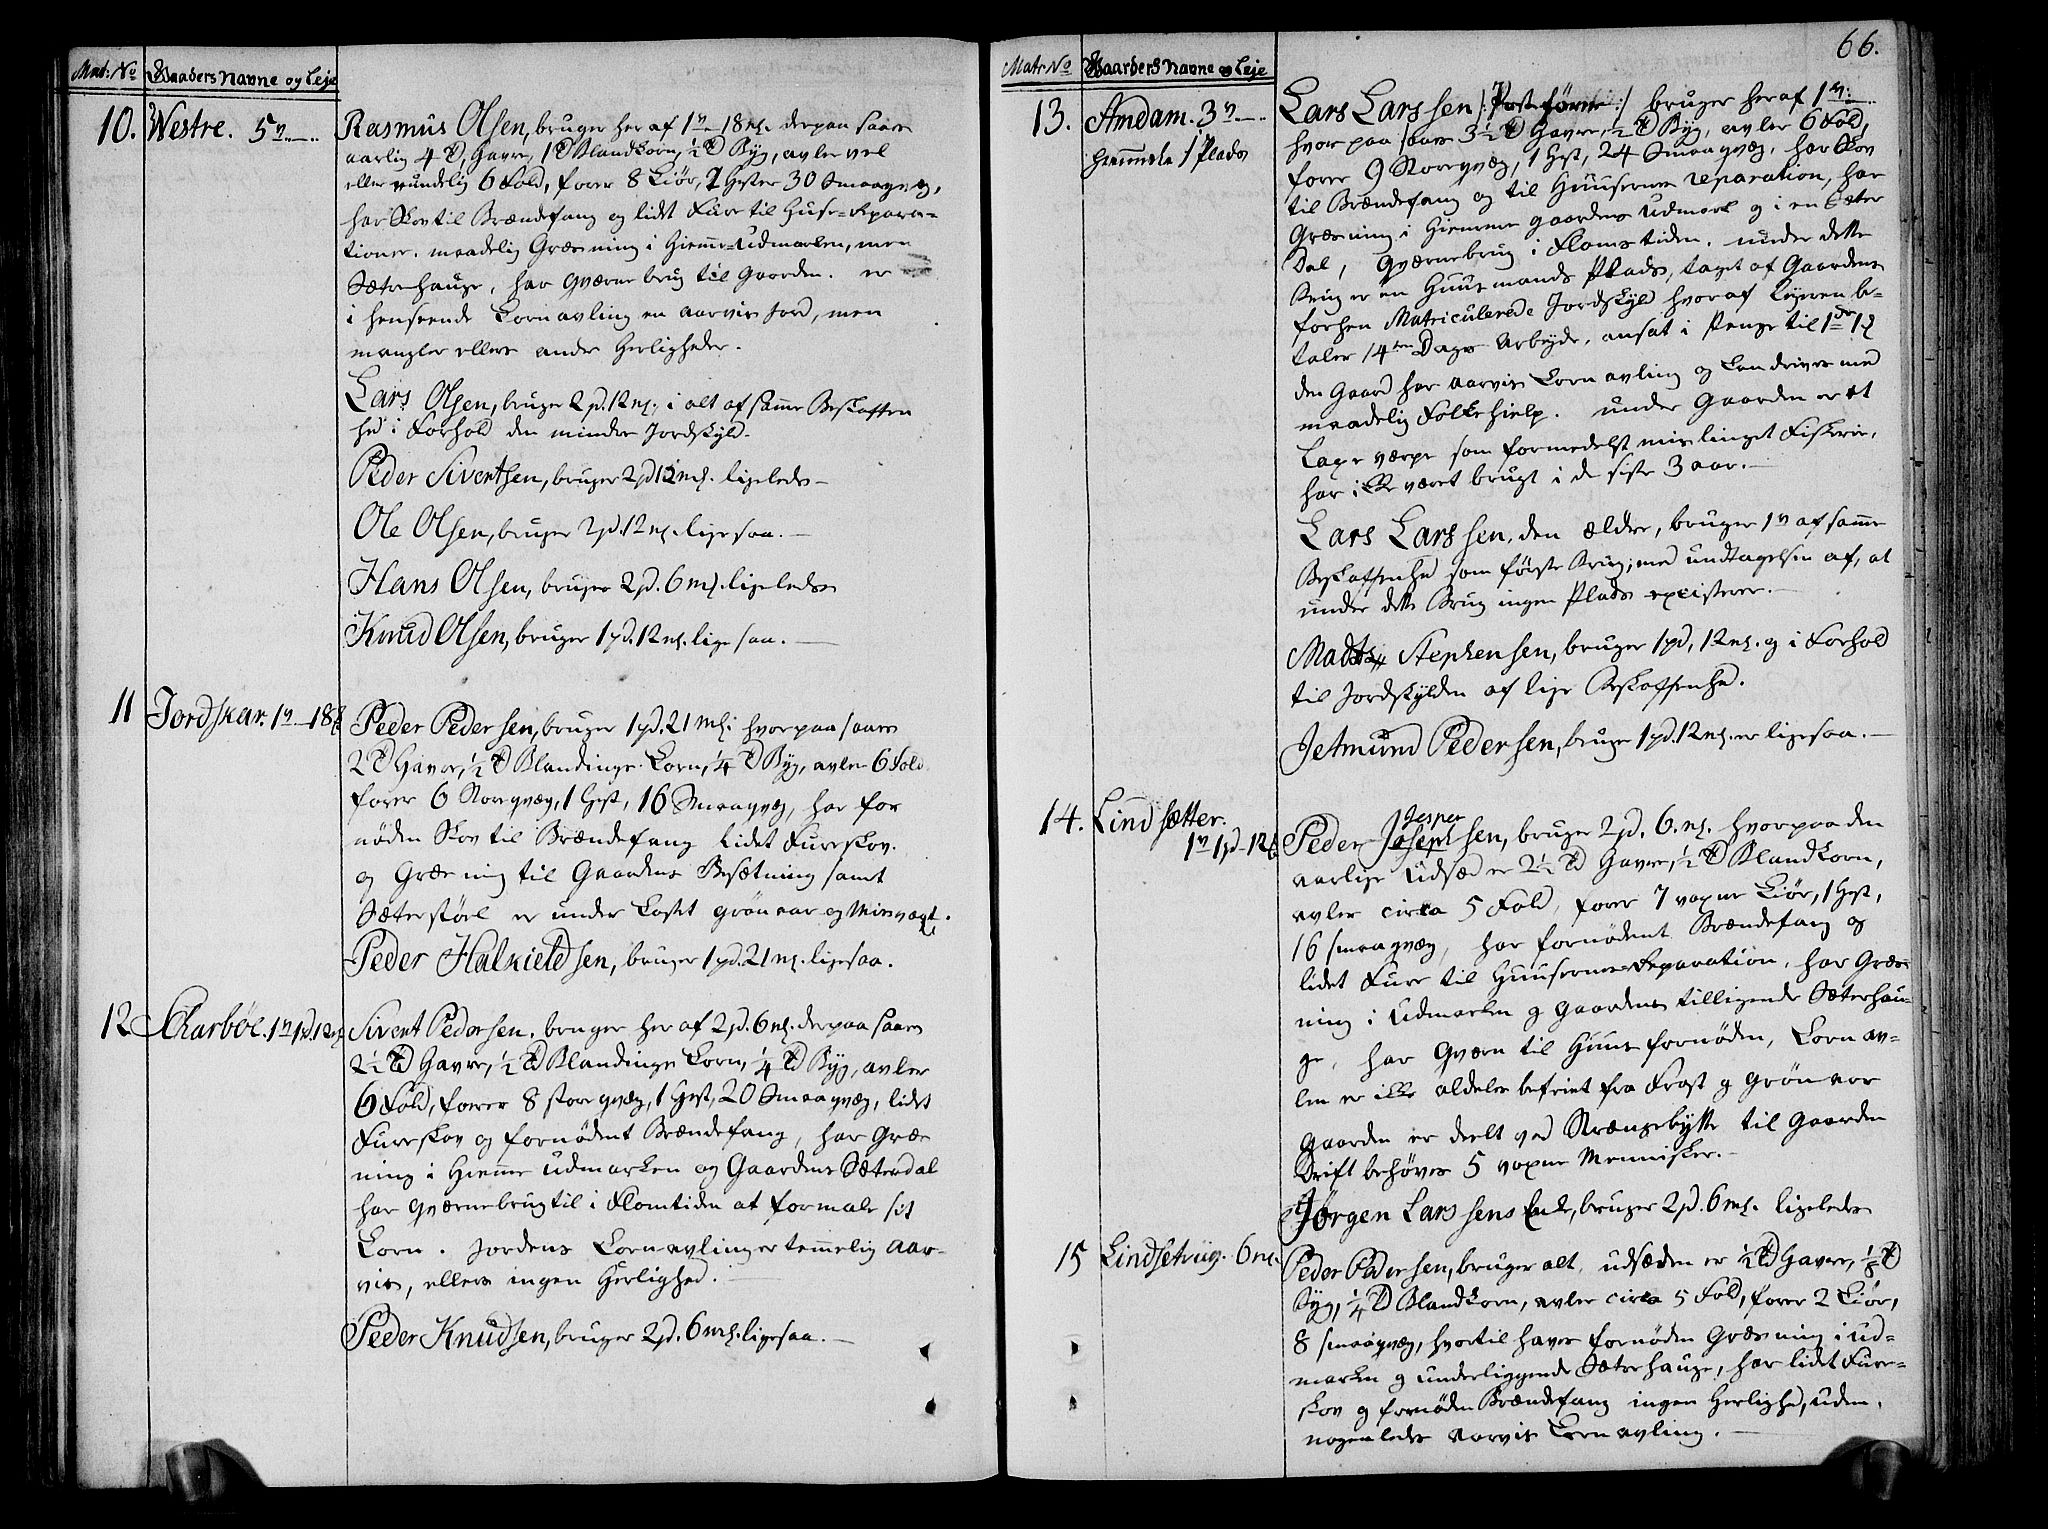 Mat: No Gaarders Navne og Leje
10. Westre. 5 v.
Rasmus Olsen, bruger her af 1 v 18 mk. derpaa saaes
aarlig 4 Td. Havre, 1 Td Blandkorn, ½ Td Byg, avler vel
eller rundelig 6 Fold, foder 8 Kiør, 2 Hester 30 Smaaqvæg,
har Skov til Brændefang og lidt Fure til Huse-Repara-
tioner. maadelig Græsning i Hiemme-Udmarken, men
Sæterhauge, har Qværnebrug til Gaarden. er
i henseende Kornavling en aarvis Jord, men
mangler ellers andre Herligheder.
Lars Olsen, bruger 2 pd. 12 mk. i alt af samme Beskaffen
hed i Forhold den mindre Jordskyld.
Peder Sivertsen, bruger 2 pd 12 mk. ligeledes
Ole Olsen, bruger 2 pd. 12 mk. ligesaa.
Hans Olsen, bruger 2 pd. 6 mk. ligeledes
Knud Olsen, bruger 1 pd. 12 mk. ligesaa.
11 Jordskar. 1 v. 18
Peder Pedersen, bruger 1 pd. 21 mk: hvorpaa saaes
2 Td Havre, ½ Td Blandings-Korn, ¼ Td Byg, avler 6 Fold
foder 6 Storqvæg, 1 Hest, 16 Smaaqvæg, har for
nøden Skov til Brændefang lidet Fureskov.
og Græsning til Gaardens Besætning samt
Sæterstøel er under Kastet grønaar og Misvæxt.
Peder Halkieldsen, bruger 1 pd. 21 mk. ligesaa.
12 Skarbøe. 1 v 1 pd. 12 mk
Sivert Pedersen, bruger her af 2 pd. 6 mk. derpaa saaes
2½ Td Havre, ½ Td Blandings Korn, ¼ Td Byg, avler
6 Fold, foder 8 store qvæg, 1 Hest, 20 Smaaqvæg, lidet
Fureskov og fornødent Brændefang, har Græs
ning i Hiemme Udmarken og Gaardens Sæterdal
har Qværnebrug til i Flomtiden at formale sit
Korn. Jordens Kornavling er temmelig aar-
vis, ellers ingen Herlighed.
Peder Knudsen, bruger 2 pd. 6 mk. ligesaa.
66.
Matr No Gaarders Navne og Leje
13. Amdam. 3 v
/Plads
Lars Larssen /: Postefører :/ bruger heraf 1 v:
hvorpaa saaes 3½ Td Havre, ½ Td Byg, avler 6 Fold,
foder 9 Storqvæg, 1 Hest, 24 Smaaqvæg, har Skov
til Brændefang og til Huusernes reparation, har
Græsning i Hiemme gaardens Udmark og i en Sæter
Dal, Qværnebrug i Flomstiden. under dette
Brug er en Huusmands Plads, taget af Gaardens
forhen Matriculerede Jordskyld hvoraf Ejeren be-
taler 14ten Dags Arbejde, ansat i Penge til 1
den Gaard har aarvis Kornavling og kan drives med
maadelig Folkehielp. under Gaarden er et
Laxe værpe som formedelst mislinget Fiskerie,
har ikke været brugt i de siste 3 aar.
Lars Larssen, den ældre, bruger 1 v af samme
Beskaffenhed som første Brug; med undtagelsen af, at
under dette Brug ingen Plads existerer.
Mads Stephensen, bruger 1 pd, 12 mk. og i Forhold
til Jordskylden af lige Beskaffenhed.
Jetmund Pedersen, bruger 1 pd. 12 mk. er ligesaa.
14. Lindsætter.
1 v 1 pd 12
Jesper
Peder Josephsen, bruger 2 pd. 6 mk. hvorpaa den
aarlige Udsæd er 2½ Td Havre, ½ Td Blandkorn,
avler circa 5 Fold, foder 7 voxne Kiør, 1 Hest,
16 smaaqvæg, har fornødent Brændefang og
lidet Fure til Huusernes Reparation, har Græs
ning i Udmarken og Gaardens tilligende Sæterhau-
ge, har Qværn til Huus fornøden, Kornav-
len er ikke aldeles befriet fra Frost og grønaar
Gaarden er deelt ved Strængebytte til Gaarden
Drift behøves 5 voxne Mennisker.
Jørgen Larssens Enke, bruger 2 pd. 6 mk. ligeledes
15 Lindsetriig. 6 mk.
Peder Pedersen, bruger alt, udsæden er ½ Td Havre, ⅛ Td
Byg, ¼ Td Blandkorn, avler circa 5 Fold, foder 2 Kiør,
8 smaaqvæg, hvortil haves fornøden Græsning i ud-
marken og underliggende Sæterhauge, har lidet Fure-
skov og fornøden Brændefang ingen Herlighed, uden
nogenledes aarvis Kornavling.